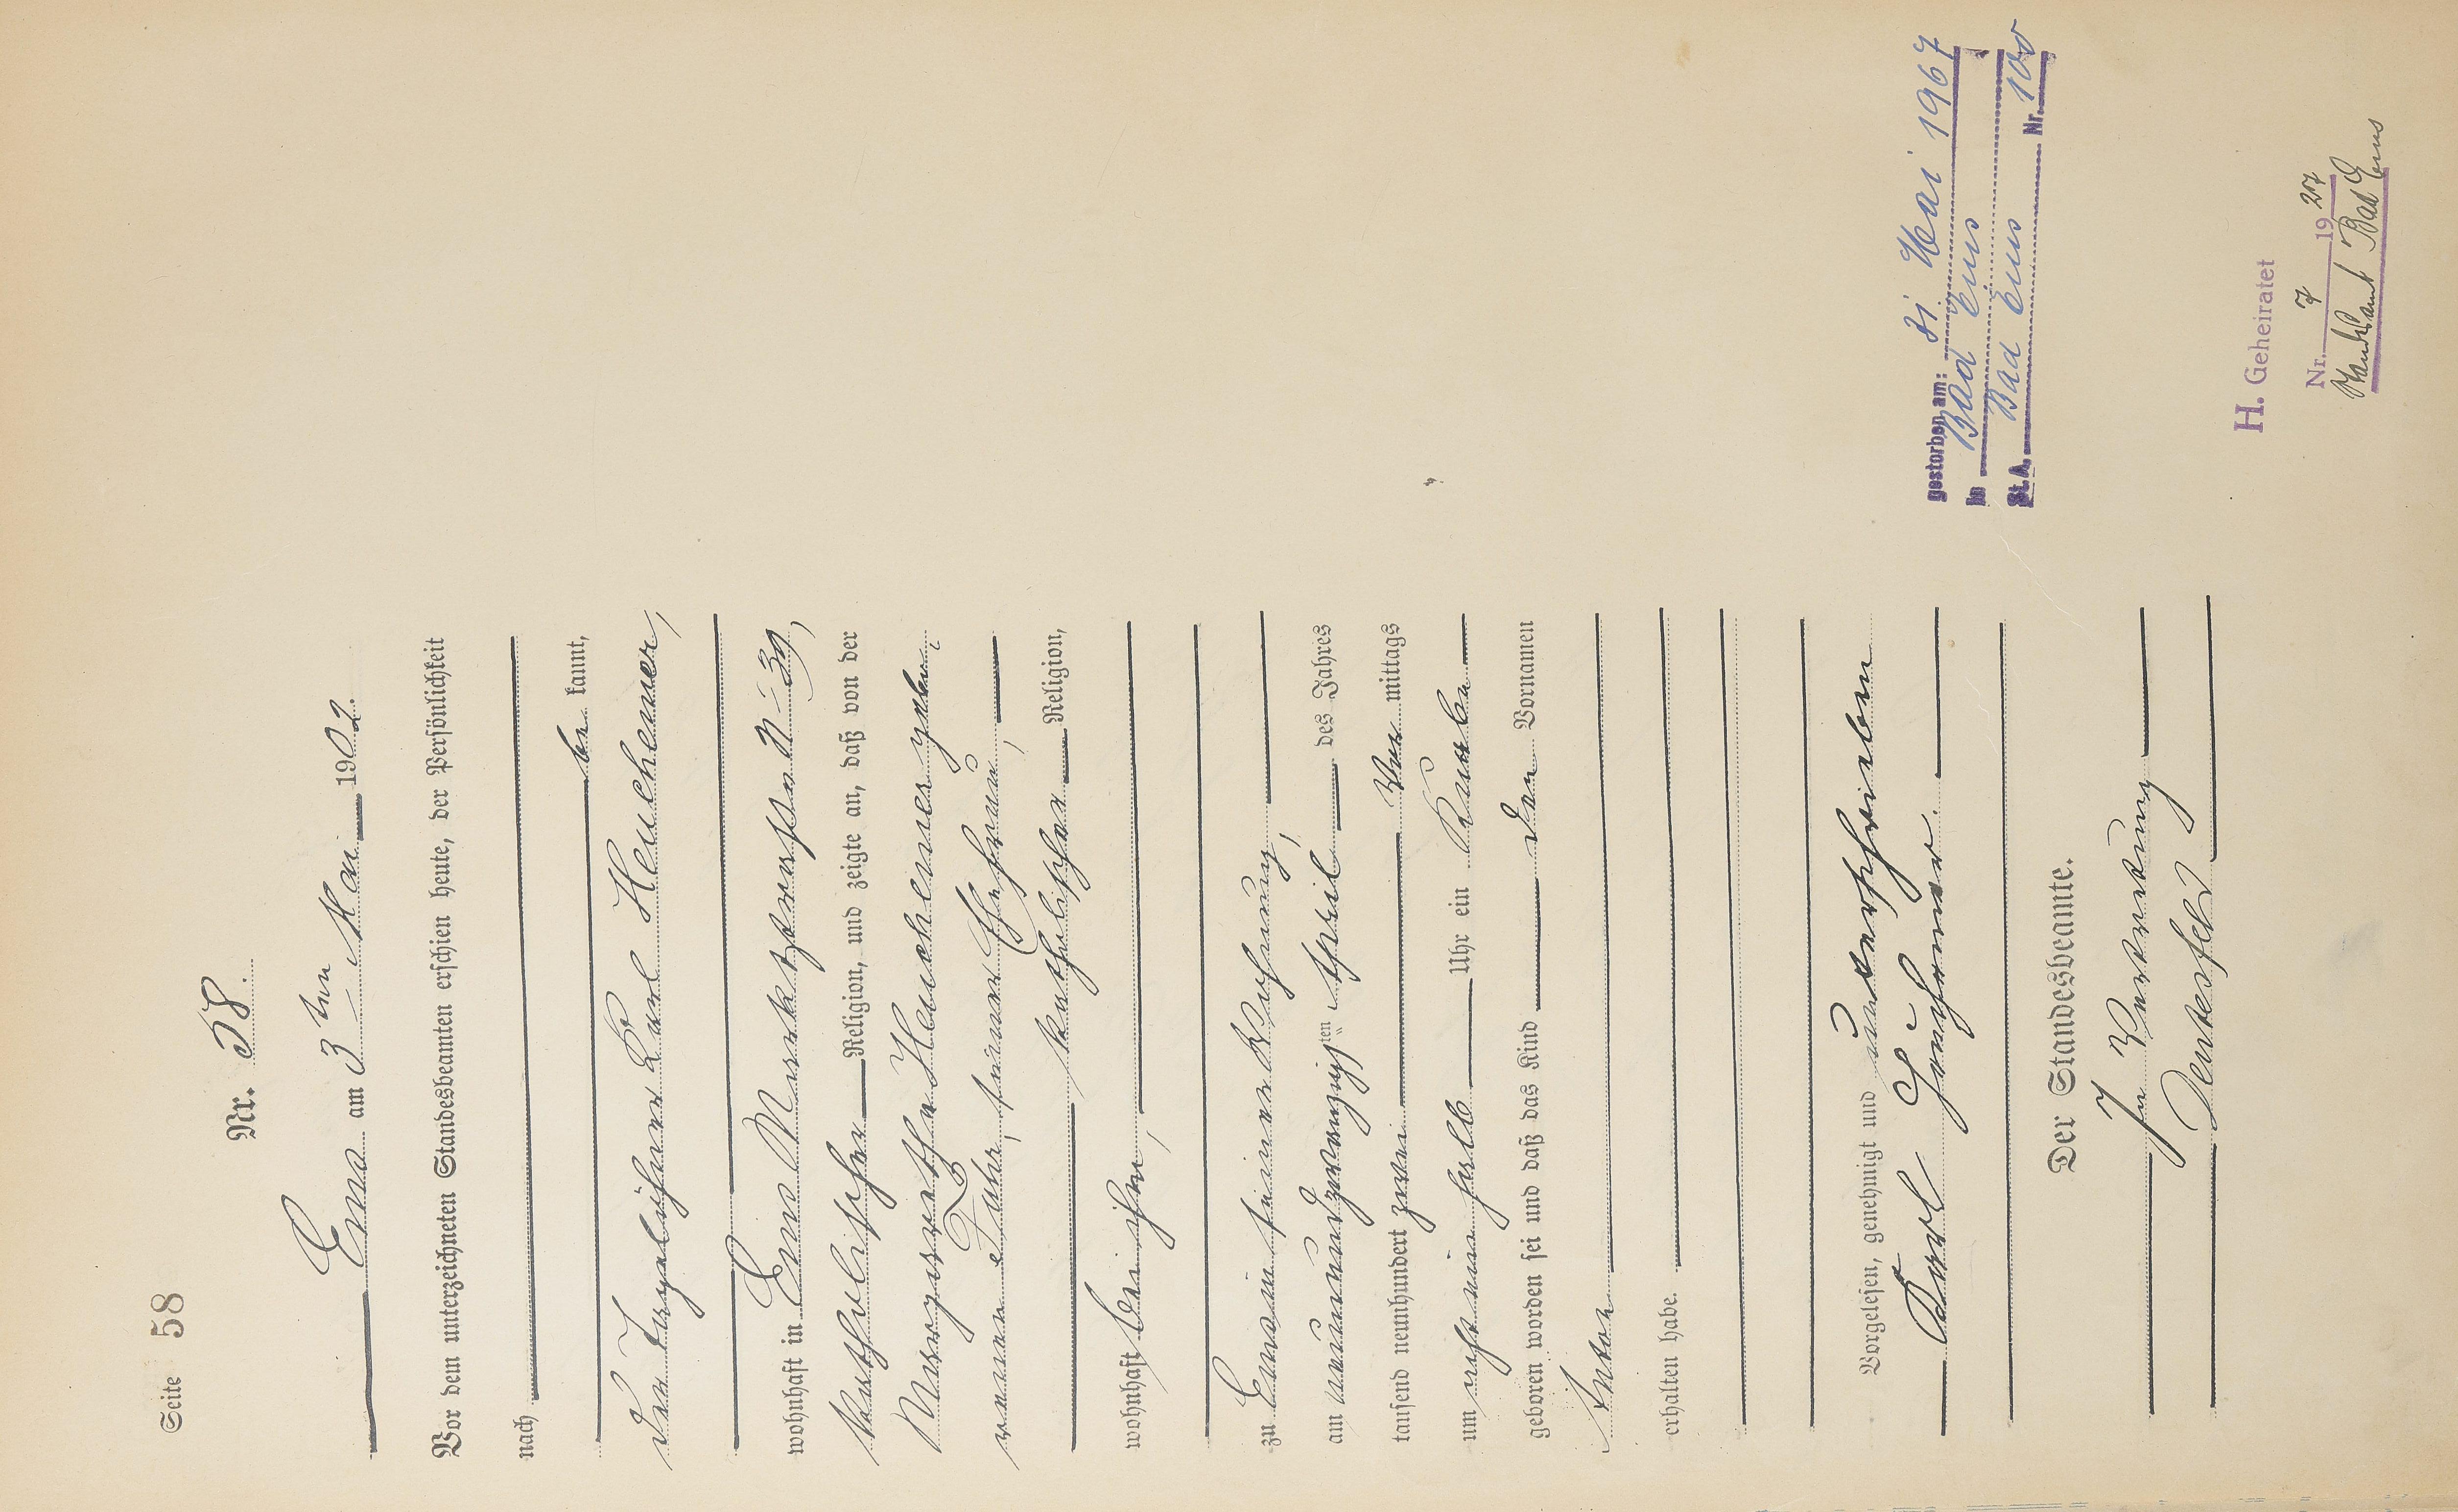 Seite 58
Nr. 58.
Ems am 3ten Mai 1902.
Vor dem unterzeichneten Standesbeamten erschien heute, der Persönlichkeit
nach
be kannt,
der Tagelöhner Karl Heuchemer,
wohnhaft in Ems Marktstrasse N: 39,
katholischer Religion, und zeigte an, daß von der
Margarethe Heuchemer gebo-
renen, seiner Ehefrau,
katholischer Religion,
wohnhaft bei ihm,
zu Ems in seiner Wohnung,
am neunundzwanzigsten April des Jahres
tausend neunhundert zwei Vor mittags
um acht ein halb Uhr ein Knabe
geboren worden sei und daß das Kind den Vornamen
Anton
erhalten habe.
Vorgelesen, genehmigt und unterschrieben
Karl Heuchemer.
Der Standesbeamte.
In Vertretung
gestorben am: 31. Mai 1967
in Bad Ems
St.A. Bad Ems Nr. 100
H. Geheiratet
Nr. 7 1927
Standesamt Bad Ems